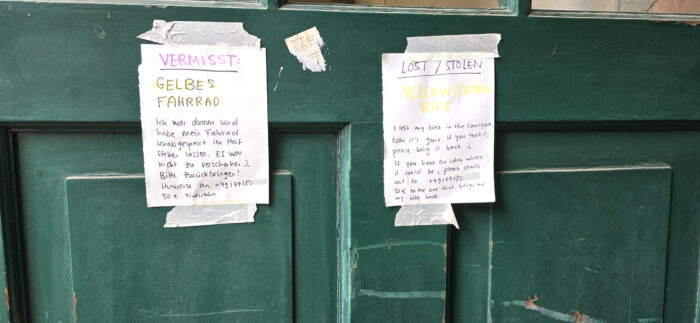 VERMISST:
GELBES
FAHRRAD
Ich war dumm und
habe mein Fahrrad
unabgesperrt im Hof
stehen lassen. Es war
nicht zu verschenken :(
Bitte zurückbringen!
Hinweise an +49177180
50 € Finderlohn
LOST / STOLEN
YELLOW/ORANGE
BIKE
I left my bike in the courtyard.
Now it's gone. If you took it,
please bring it back :)
If you have an idea where
it could be, please reach
out to +49177180
50 € to the one that brings me
my bike back